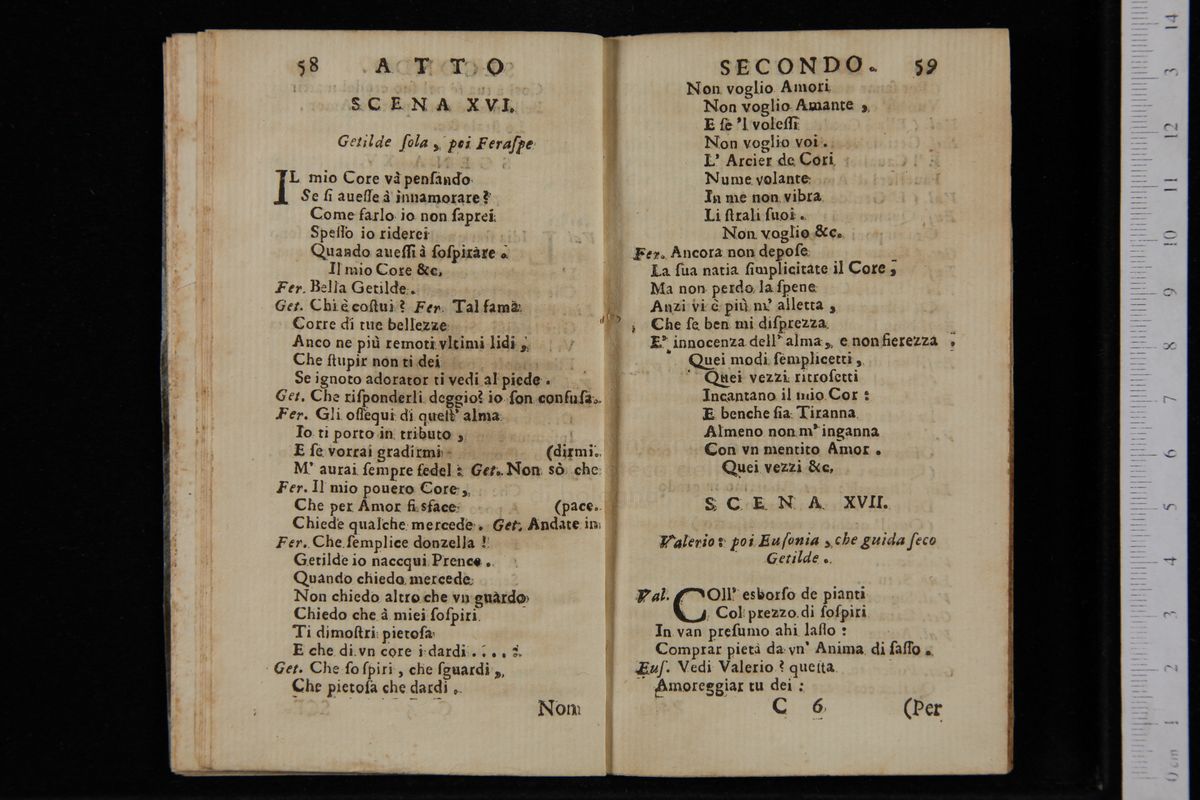 58 ATTO
SCENA XVI.
Getilde ſola, poi Feraſpe
IL mio Core và penſando
Se ſi aueſſe à innamorare?
Come farlo io non ſaprei
Speſſo io riderei
Quando aueſſi à ſoſpirare.
Il mio Core &c.
Fer. Bella Getilde.
Get. Chi è coſtui? Fer. Tal fama
Corre di tue bellezze
Anco ne più remoti vltimi lidi,
Che ſtupir non ti dei
Se ignoto adorator ti vedi al piede.
Get. Che riſponderli deggio? io ſon confuſa.
Fer. Gli oſſequi di queſt' alma
Io ti porto in tributo,
E ſe vorrai gradirmi (dirmi.
M' aurai ſempre fedel: Get. Non sò che
Fer. Il mio pouero Core,
Che per Amor ſi sface (pace.
Chiede qualche mercede. Get. Andate in
Fer. Che ſemplice donzella!
Getilde io naccqui Prence.
Quando chiedo mercede
Non chiedo altro che vn guàrdo
Chiedo che à miei ſoſpiri
Ti dimoſtri pietoſa
E che di vn core i dardi....
Get. Che ſoſpiri, che ſguardi,
Che pietoſa che dardi.
Non
SECONDO. 59
Non voglio Amori
Non voglio Amante,
E ſe 'l voleſſi
Non voglio voi.
L' Arcier de Cori
Nume volante
In me non vibra
Li ſtrali ſuoi.
Non voglio &c.
Fer. Ancora non depoſe
La ſua natia ſimplicitate il Core;
Ma non perdo la ſpene
Anzi vi è più m' alletta,
Che ſe ben mi diſprezza
E' innocenza dell' alma, e non fierezza.
Quei modi ſemplicetti,
Quei vezzi ritroſetti
Incantano il mio Cor:
E benche ſia Tiranna
Almeno non m' inganna
Con vn mentito Amor.
Quei vezzi &c.
SCENA XVII.
Valerio: poi Euſonia, che guida ſeco
Getilde.
Val. COll' esborſo de pianti
Col prezzo di ſoſpiri
In van preſumo ahi laſſo:
Comprar pietà da vn' Anima di ſaſſo.
Euſ. Vedi Valerio? queſta
Amoreggiar tu dei:
C 6 (Per